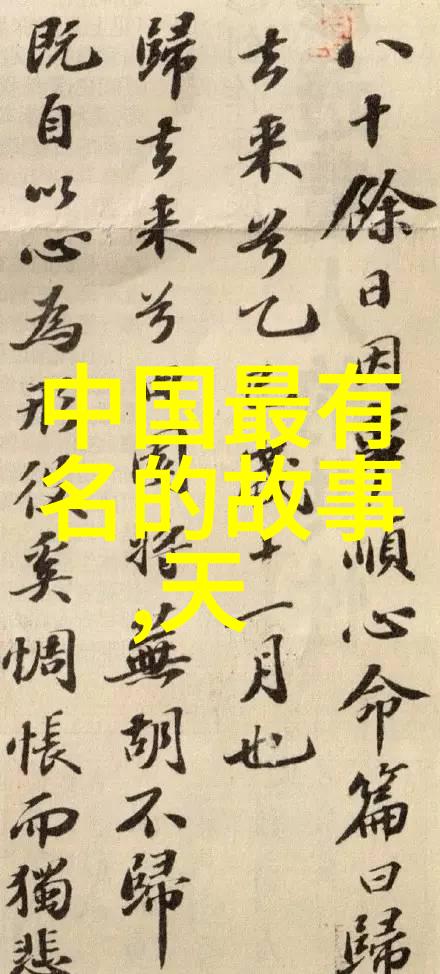 八十餘日因事順心命篇曰歸
去来兮乙巳歲十一月也
歸去来兮田園将蕪胡不歸
既自以心為形役奚惆悵而獨悲
中国最有
名的故事
,天